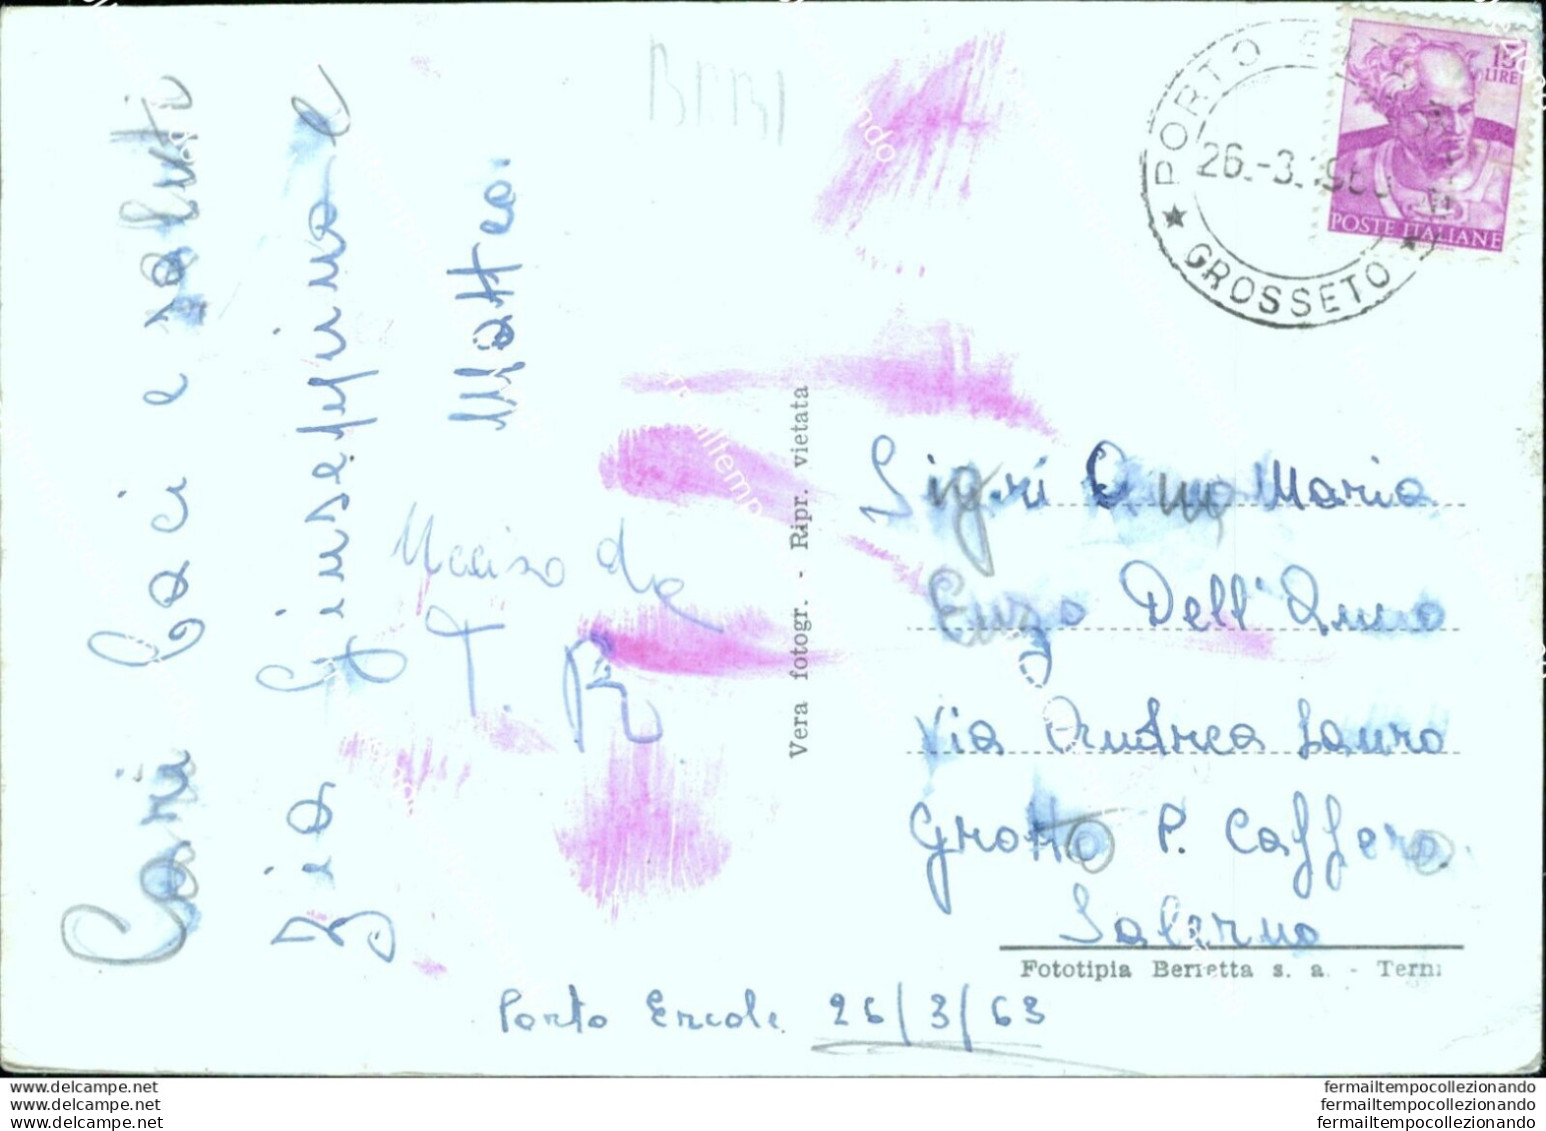 Cari baci e saluti
Zia Giuseppina e
Matteo.
Ucciso da
T.
Vera fotogr. - Ripr. vietata
PORTO
26.-3.196
GROSSETO
15
LIRE
POSTE ITALIANE
Sigri Anna Maria
Enzo Dell'Anno
Via Andrea Sauro
Grotto P. Caffero
Salerno
Fototipia Berretta s. a. - Terni
Porto Ercole 26/3/63
www.delcampe.net
www.delcampe.net
www.delcampe.net
fermailtempocollezionando
fermailtempocollezionando
fermailtempocollezionando